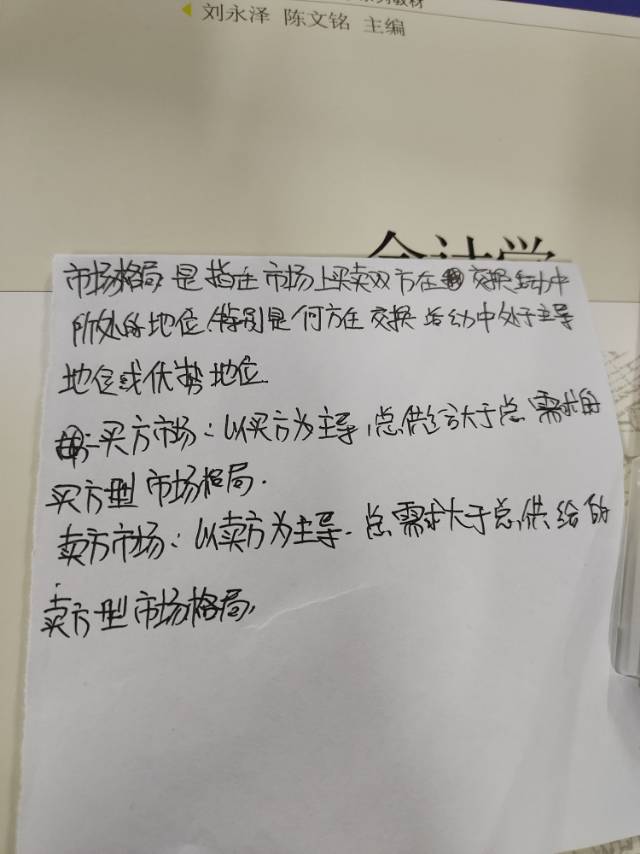 系列教材
刘永泽 陈文铭 主编
会计学
市场格局是指在市场上买卖双方在交换活动中
所处的地位,特别是何方在交换活动中处于主导
地位或优势地位.
买方市场:以买方为主导,总供给大于总需求的
买方型市场格局.
卖方市场:以卖方为主导.总需求大于总供给的
卖方型市场格局,